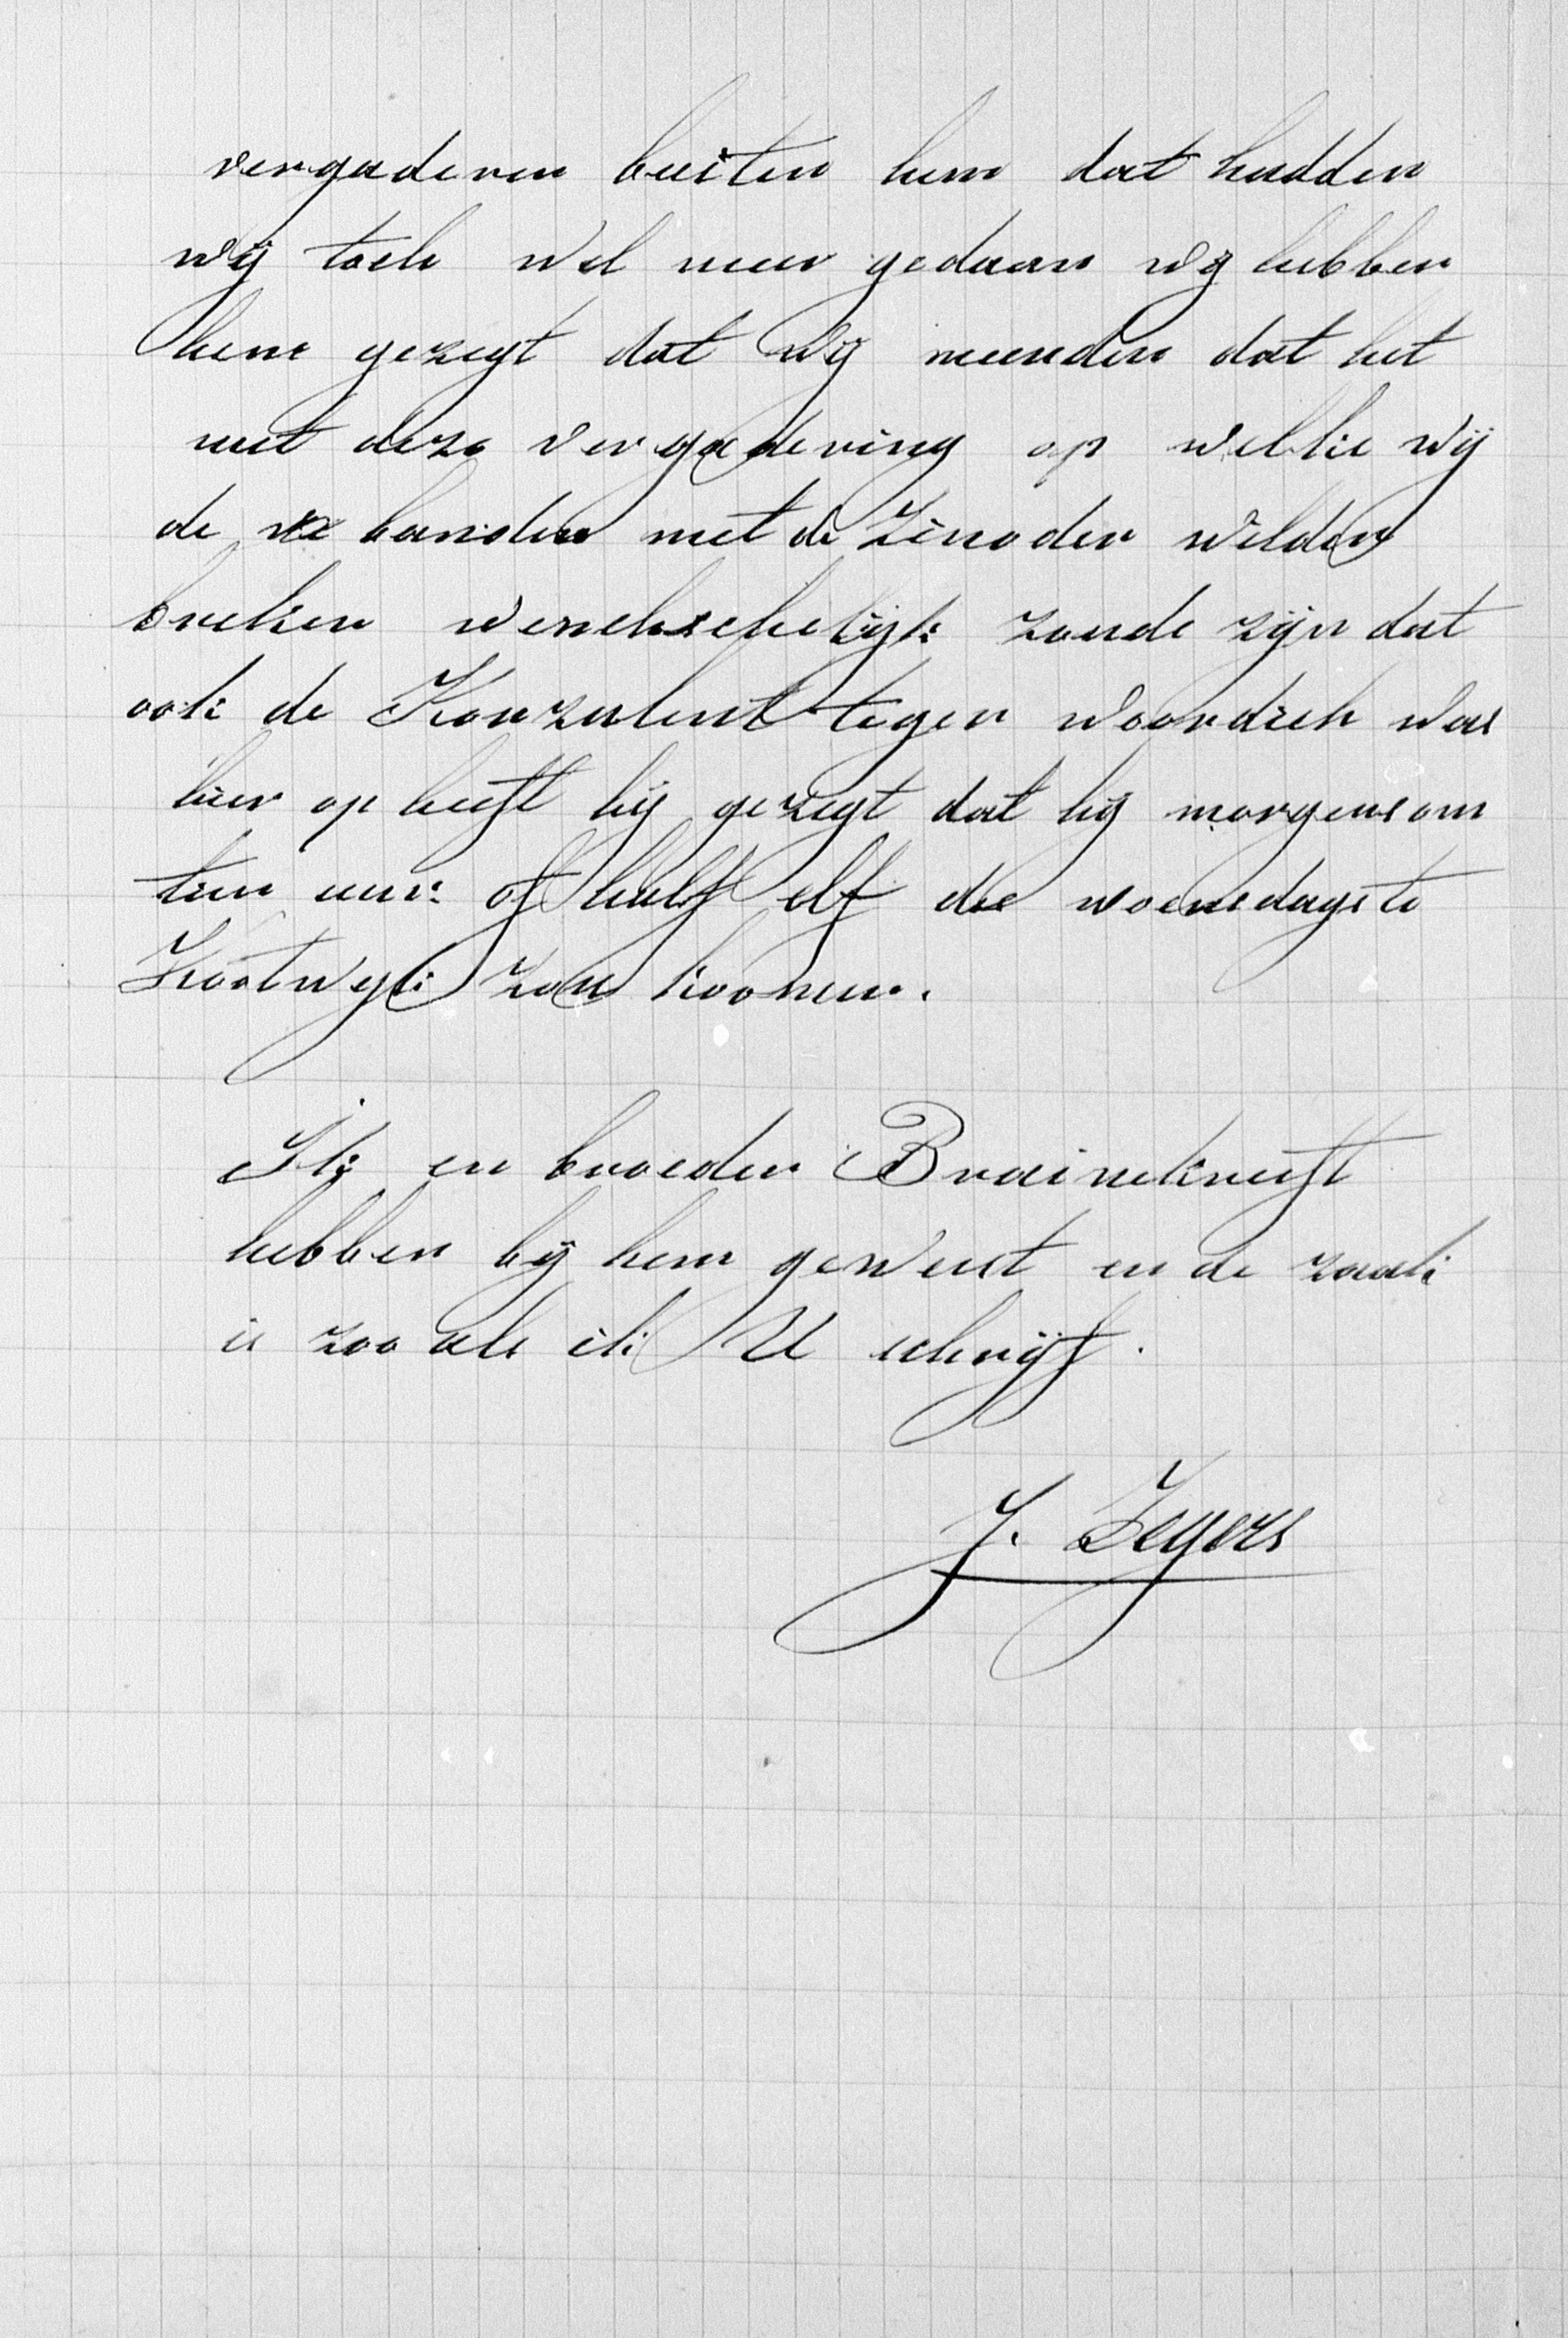 vergaderen buiten hem dat hadden
wij toch wel meer gedaan wij hebben
hem gezegt dat wij meenden dat het
met deze vergadering op welke wij
de banden met de Zinoden wilden
breken wenchschelijk zoude zijn dat
ook de Konzulent tegen woordich was
hier op heeft hij gezegt dat hij morgens om
tien uur of half elf des woensdags te
Kootwijk zou koomen.
Ik en broeder Brainekreeft
hebben bij hem geweest en de zaak
is zoo als ik U schrijf.
J. Zegers